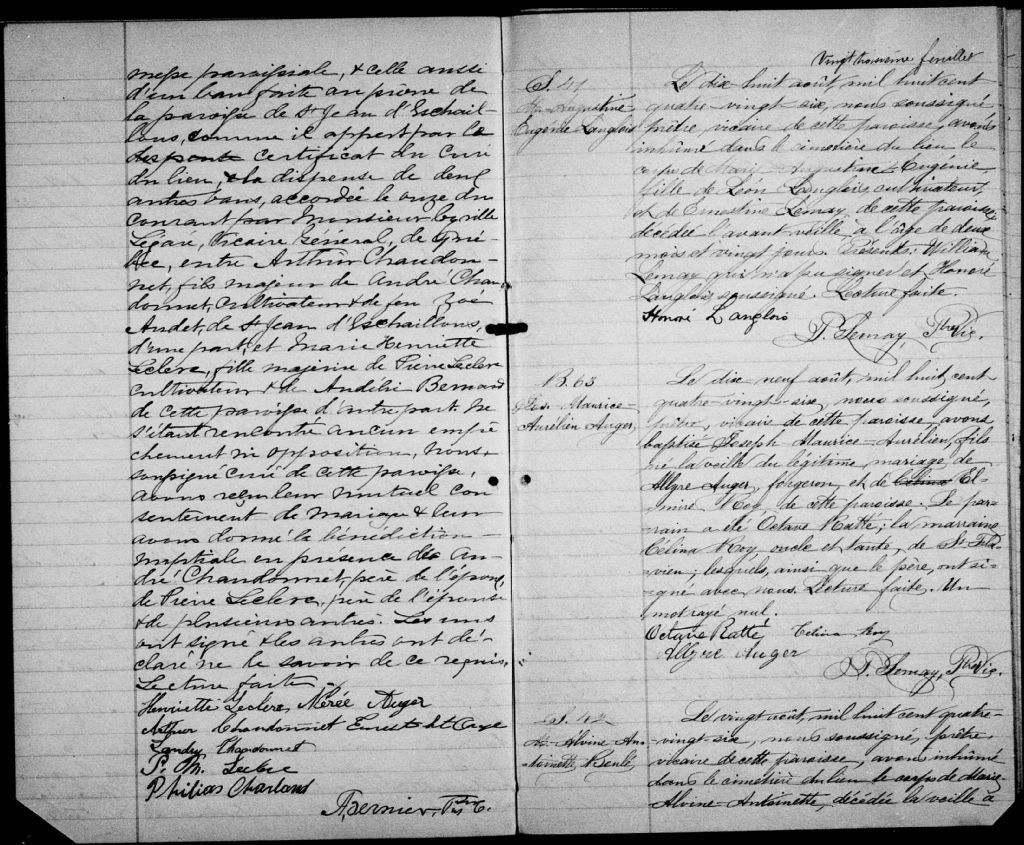 messe paroissiale, & celle aussi
d'un ban faite au prone de
la paroisse de St Jean d'Eschail-
lons, comme il appert par le
certificat du curé
du lieu, & la dispense de deux
autres bans, accordée le onze du
courant par Monsieur Cyrille
Légaré, Vicaire Général, de Qué-
bec, entre Arthur Chandon-
net, fils majeur de André Chan-
donnet, cultivateur & de feu Zoé
Audet, de St Jean d'Eschaillons,
d'une part, et Marie Henriette
Leclerc, fille majeure de Pierre Leclerc
cultivateur & de Audélie Bernard
de cette paroisse d'autre part. Ne
s'étant rencontré aucun empê-
chement ni opposition, Nous,
soussigné curé de cette paroisse,
avons reçu leur mutuel con
sentement de mariage & leur
avons donné la bénédiction
nuptiale en présence de An-
dré Chandonnet, père de l'époux,
de Pierre Leclerc, père de l'épouse
& de plusieurs autres. Les uns
ont signé & les autres ont dé-
claré ne le savoir de ce requis.
Lecture faite
Henriette Leclerc Nérée Auger
Arthur Chandonnet Ernest
Chandonnet
P. Th. Leclerc
Philias Charland
A. Bernier, Ptre C.
Vingt troisième feuillet
S. 41
M. Augustine
Eugénie Langlois
Le dix-huit août, mil huit cent
quatre-vingt-six, nous soussigné
prêtre vicaire de cette paroisse, avons
inhumé dans le cimetière du lieu le
corps de Marie Augustine Eugénie
fille de Léon Langlois cultivateur
et de Ernestine Lemay de cette paroisse,
décédée l'avant veille à l'âge de deux
mois et vingt jours. Présents: William
Lemay qui n'a pu signer et Honoré
Langlois, soussigné. Lecture faite.
Honoré Langlois
P. Lemay Ptre Vic.
B. 63
Jos. Maurice-
Aurélien Auger,
Le dix-neuf août, mil huit cent
quatre-vingt-six, nous soussigné,
prêtre, vicaire de cette paroisse, avons
baptisé Joseph Maurice-Aurélien, fils
né la veille du légitime mariage de
Allyre Auger, forgeron, et de Célina El-
mire Roy de cette paroisse. Le par-
rain a été Octave Ratté; la marraine
Célina Roy, oncle et tante, de St Fla-
vien; lesquels, ainsi que le père, ont si-
gné avec nous. Lecture faite. Un
mot rayé nul.
Octave Ratté Célina Roy
Allyre Auger
P. Lemay, Ptre Vic.
S. 42
M. Alvine An-
toinette Beulé
Le vingt août, mil huit cent quatre-
vingt-six, nous soussigné, prêtre,
vicaire de cette paroisse, avons inhumé
dans le cimetière du lieu le corps de Marie
Alvine-Antoinette, décédée la veille à